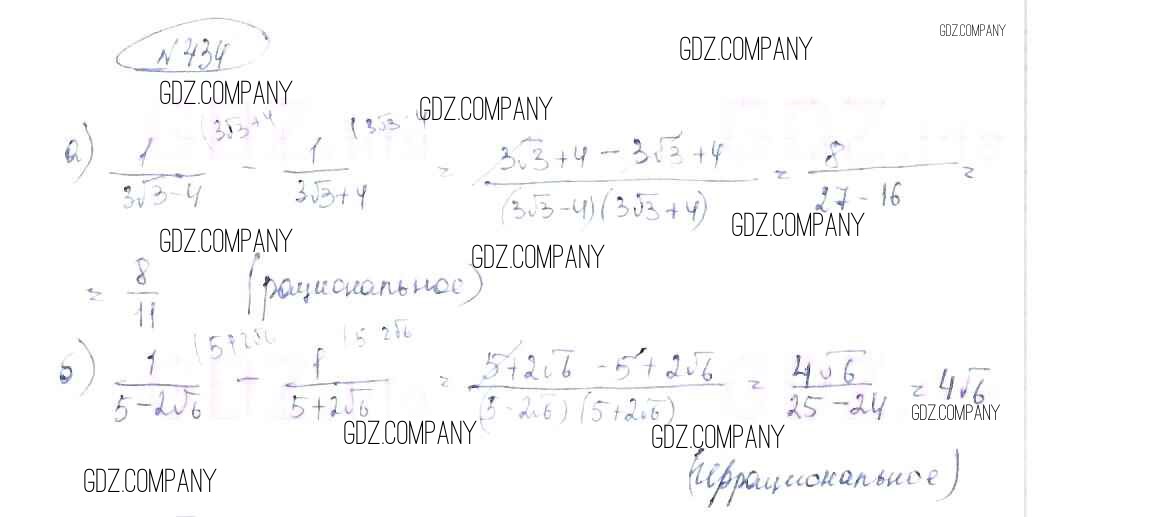 GDZ.COMPANY
№ 434
GDZ.COMPANY
GDZ.COMPANY
GDZ.COMPANY
а) 1/(3√3-4) (3√3+4 - 1/(3√3+4) (3√3-4 = (3√3+4-3√3+4)/((3√3-4)(3√3+4)) = 8/(27-16) =
GDZ.COMPANY
GDZ.COMPANY
GDZ.COMPANY
= 8/11 (рациональное)
б) 1/(5-2√6) (5+2√6 - 1/(5+2√6) (5-2√6 = (5+2√6-5+2√6)/((5-2√6)(5+2√6)) = 4√6/(25-24) = 4√6
GDZ.COMPANY
GDZ.COMPANY
GDZ.COMPANY
GDZ.COMPANY
(иррациональное)